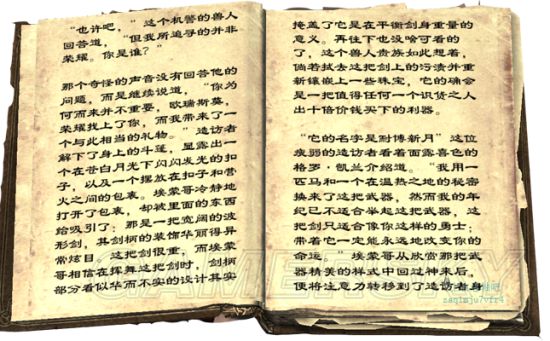 “也许吧，”这个机警的兽人
回答道，“但我所追寻的并非
荣耀。你是谁？”
那个奇怪的声音没有回答他的
问题，而是继续说道，“你为
何而来并不重要，欧瑞斯莫，
荣耀找上了你，而我带来了一
个与此相当的礼物。”造访者
解下了身上的斗篷，显露出一
个在苍白月光下闪闪发光的扣
子，以及一个摆放在扣子和营
火之间的包裹。埃蒙哥冷静地
打开了包裹，却被里面的东西
给吸引了：那是一把宽阔的波
形剑，其剑柄的装饰华丽得异
常炫目。这把剑很重，而埃蒙
哥相信在挥舞这把剑时，剑柄
部分看似华而不实的设计其实
掩盖了它是在平衡剑身重量的
意义。再往下也没啥可看的
了，这个兽人贵族如此想着，
倘若拭去这把剑上的污渍并重
新镶嵌上一些珠宝，它的确会
是一把值得任何一个识货之人
出十倍价钱买下的利器。
“它的名字是耐博新月”这位
疲弱的造访者看着面露喜色的
格罗·凯兰介绍道。“我用一
匹马和一个在温热之地的秘密
换来了这把武器，然而我的年
纪已不适合举起这把武器，这
把剑只适合像你这样的勇士；
带着它一定能永远地改变你的
命运。”埃蒙哥从欣赏那把武
器精美的样式中回过神来后，
便将注意力转移到了造访者身
zaqimju7vfr4